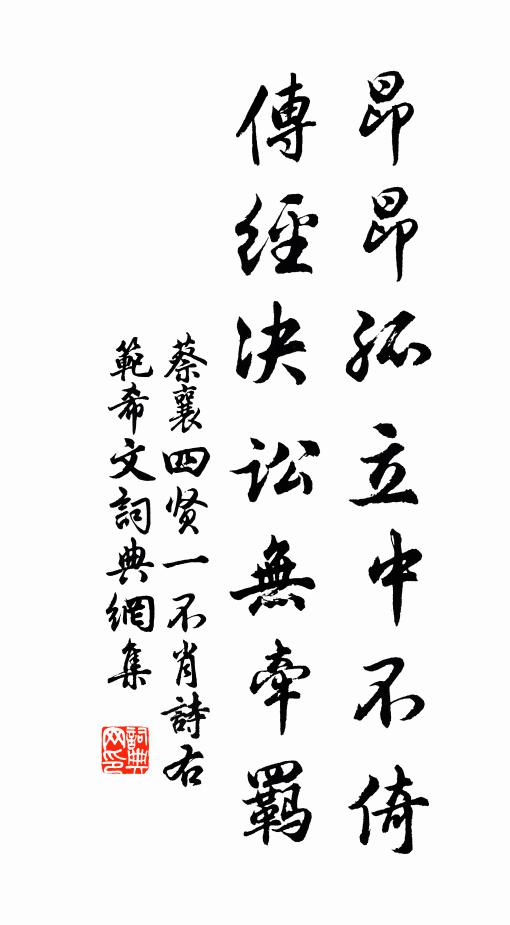 昂昂孤立中不倚
傳經決訟無牽羈
蔡襄四贤一不肖詩右
範希文詞典網集
詞典网印